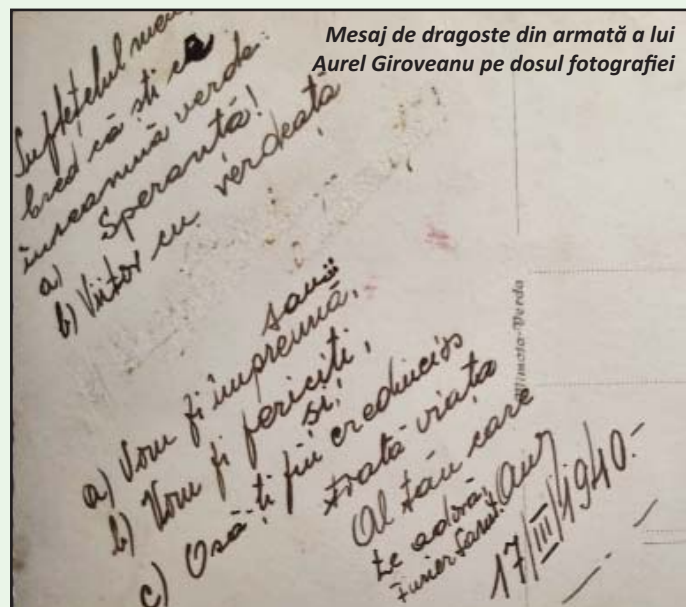 Mesaj de dragoste din armată a lui
Aurel Giroveanu pe dosul fotografiei
Sufletelul meu,
Cred că ști ce
înseamnă verde:
a) Speranță!
b) Viitor cu verdeață
sau:
a) Vom fi împreună,
b) Vom fi fericiți,
și;
c) Osă-ți fiu credincios
toată viața
Al tău care
te adoră,
Furier
17/III/1940.-
Mimosa-Verda